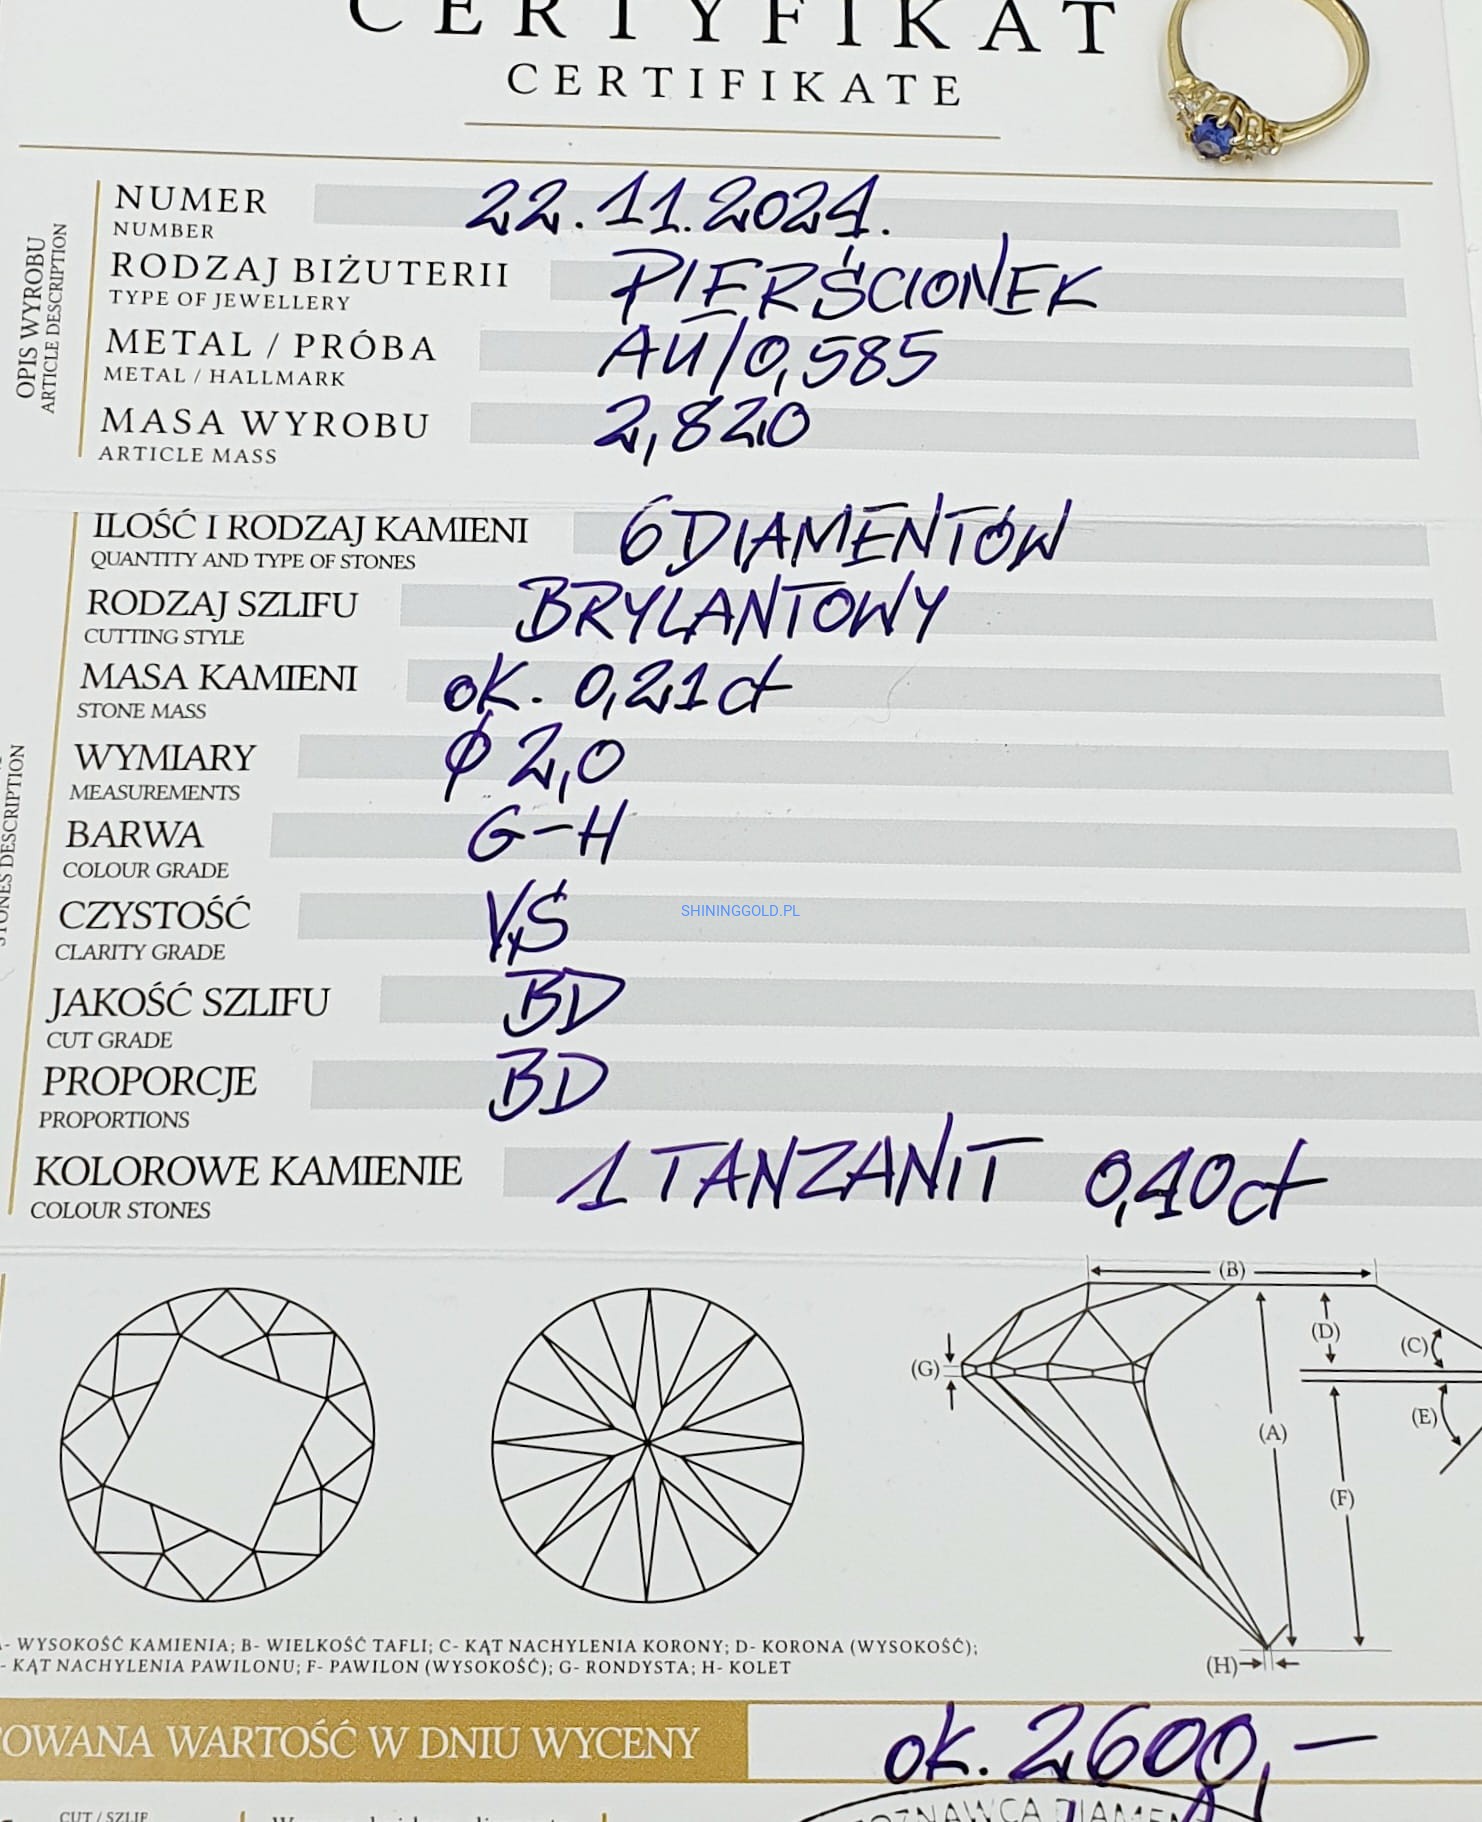 CERTYFIKAT
CERTIFIKATE
OPIS WYROBU
ARTICLE DESCRIPTION
NUMER 22.11.2024.
NUMBER
RODZAJ BIŻUTERII PIERŚCIONEK
TYPE OF JEWELLERY
METAL / PRÓBA AU/0,585
METAL / HALLMARK
MASA WYROBU 2,820
ARTICLE MASS
STONES DESCRIPTION
ILOŚĆ I RODZAJ KAMIENI 6 DIAMENTÓW
QUANTITY AND TYPE OF STONES
RODZAJ SZLIFU BRYLANTOWY
CUTTING STYLE
MASA KAMIENI ok. 0,21ct
STONE MASS
WYMIARY ϕ 2,0
MEASUREMENTS
BARWA G-H
COLOUR GRADE
CZYSTOŚĆ VS
CLARITY GRADE
SHININGGOLD.PL
JAKOŚĆ SZLIFU BD
CUT GRADE
PROPORCJE BD
PROPORTIONS
KOLOROWE KAMIENIE 1 TANZANIT 0,40ct
COLOUR STONES
(B)
(D)
(C)
(G)
(E)
(A)
(F)
(H)
- WYSOKOŚĆ KAMIENIA; B- WIELKOŚĆ TAFLI; C- KĄT NACHYLENIA KORONY; D- KORONA (WYSOKOŚĆ);
- KĄT NACHYLENIA PAWILONU; F- PAWILON (WYSOKOŚĆ); G- RONDYSTA; H- KOLET
OWANA WARTOŚĆ W DNIU WYCENY ok. 2600,-
CUT / SZLIF